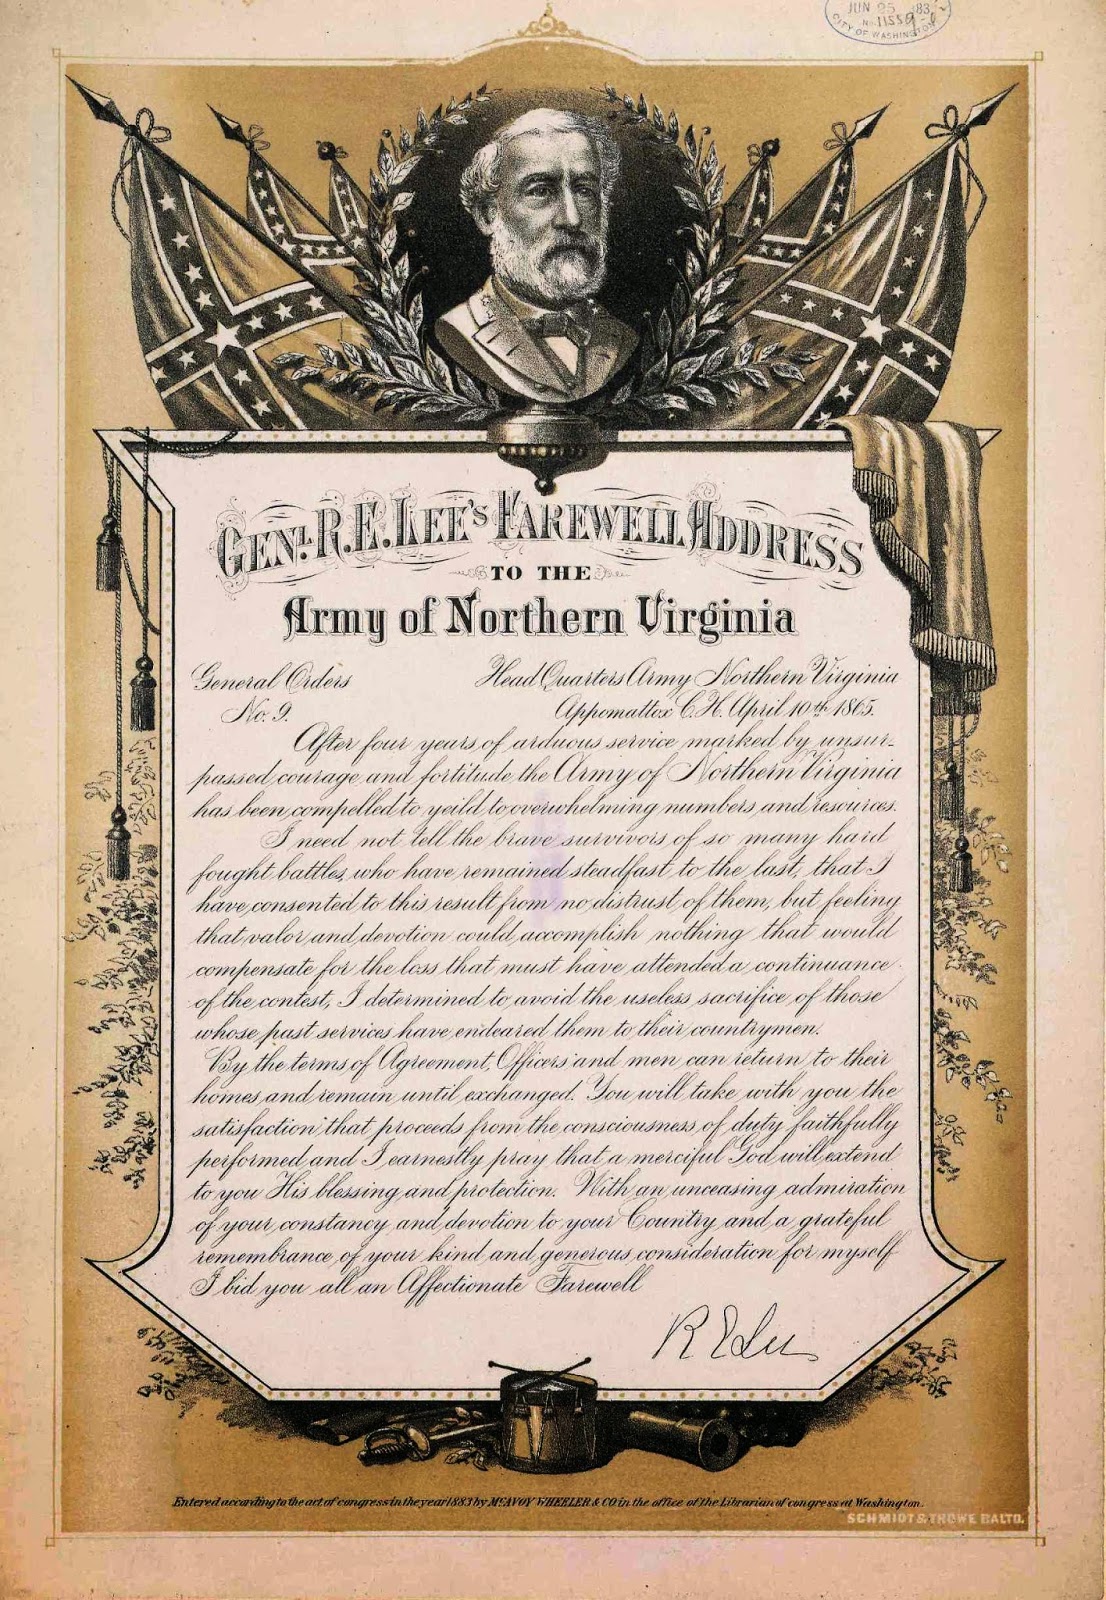 JUN 25 1883
No. 11559
CITY OF WASHINGTON
GENL. R. E. LEE'S FAREWELL ADDRESS
TO THE
Army of Northern Virginia
General Orders Head Quarters Army Northern Virginia
No. 9. Appomattox C. H. April 10th 1865.
After four years of arduous service marked by unsur-
passed courage and fortitude the Army of Northern Virginia
has been compelled to yeild to overwhelming numbers and resources.
I need not tell the brave survivors of so many hard
fought battles, who have remained steadfast to the last, that I
have consented to this result from no distrust of them, but feeling
that valor and devotion could accomplish nothing that would
compensate for the loss that must have attended a continuance
of the contest, I determined to avoid the useless sacrifice of those
whose past services have endeared them to their countrymen.
By the terms of Agreement, Officers and men can return to their
homes and remain until exchanged. You will take with you the
satisfaction that proceeds from the consciousness of duty faithfully
performed and I earnestly pray that a merciful God will extend
to you His blessing and protection. With an unceasing admiration
of your constancy and devotion to your Country and a grateful
remembrance of your kind and generous consideration for myself
I bid you all an Affectionate Farewell
R E Lee
Entered according to the act of congress in the year 1883 by McAVOY WHEELER & CO in the office of the Librarian of congress at Washington.
SCHMIDT & TROWE BALTO.